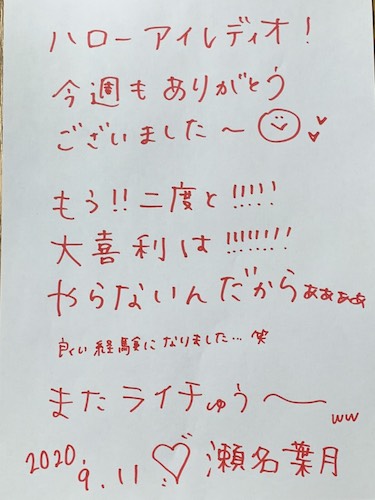 ハローアイレディオ!
今週もありがとう
ございました〜
もう!!二度と!!!!!
大喜利は!!!!!!!
やらないんだからぁぁぁぁ
良い経験になりました…笑
またライチゅう〜
ww
2020.9.11 瀬名葉月